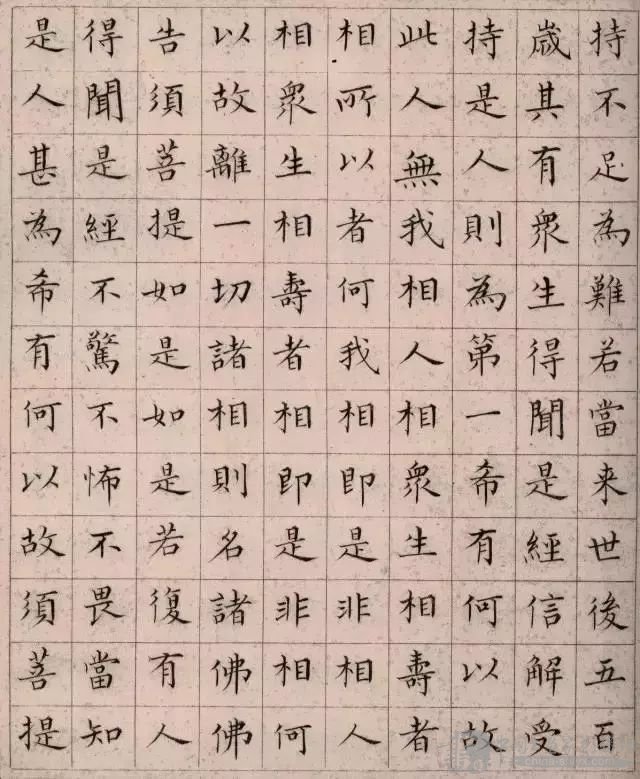 持不足為難若當来世後五百
歳其有衆生得聞是經信解受
持是人則為第一希有何以故
此人無我相人相衆生相壽者
相所以者何我相即是非相人
相衆生相壽者相即是非相何
以故離一切諸相則名諸佛佛
告須菩提如是如是若復有人
得聞是經不驚不怖不畏當知
是人甚為希有何以故須菩提